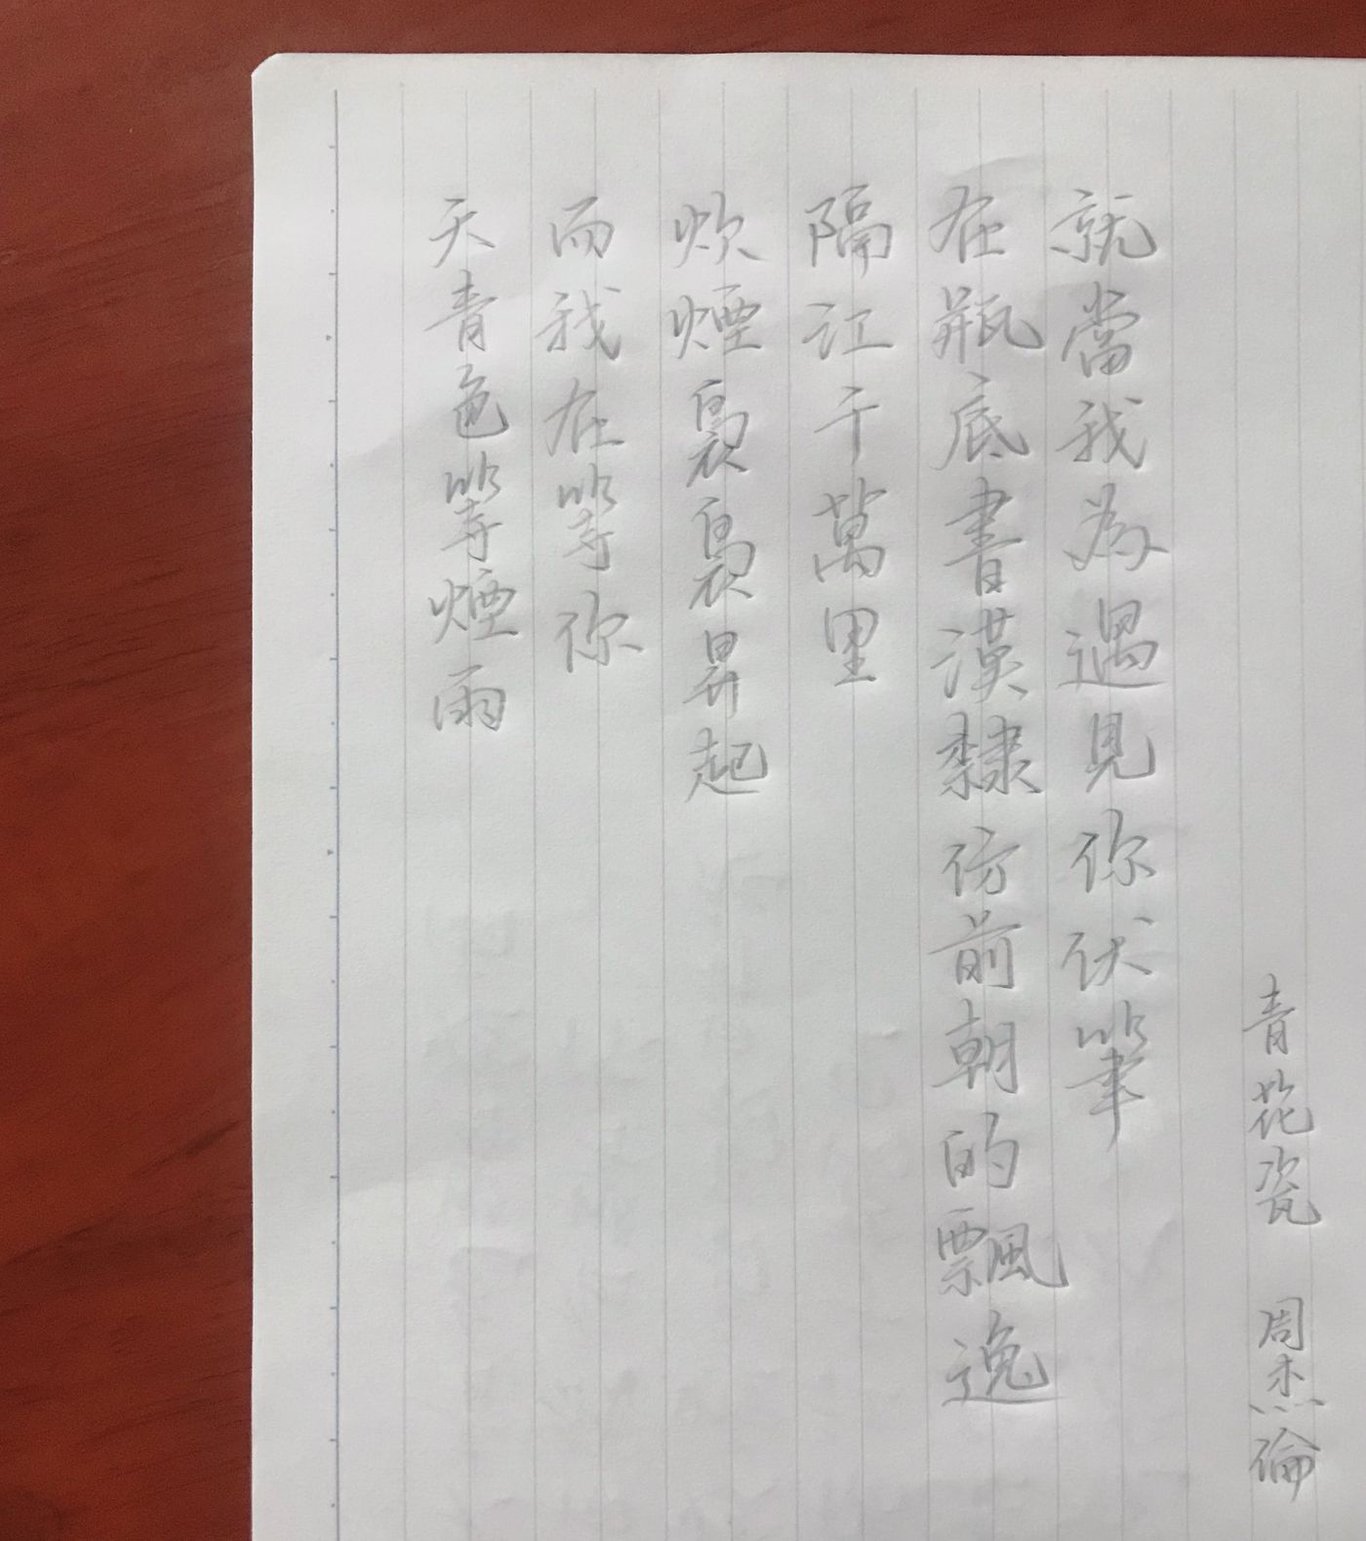 天青色等煙雨
而我在等你
炊煙裊裊昇起
隔江千萬里
在瓶底書漢隸仿前朝的飄逸
就當我為遇見你伏筆
青花瓷 周杰倫